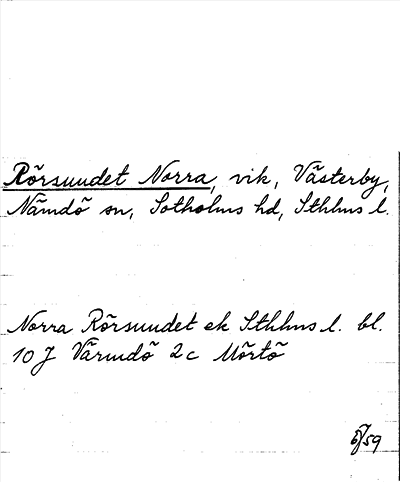 Rörsundet Norra, vik, Västerby,
Nämdö sn, Sotholms hd, Sthlms l.
Norra Rörsundet ek Sthlms l. bl.
10 J Värmdö 2c Mörtö
/59